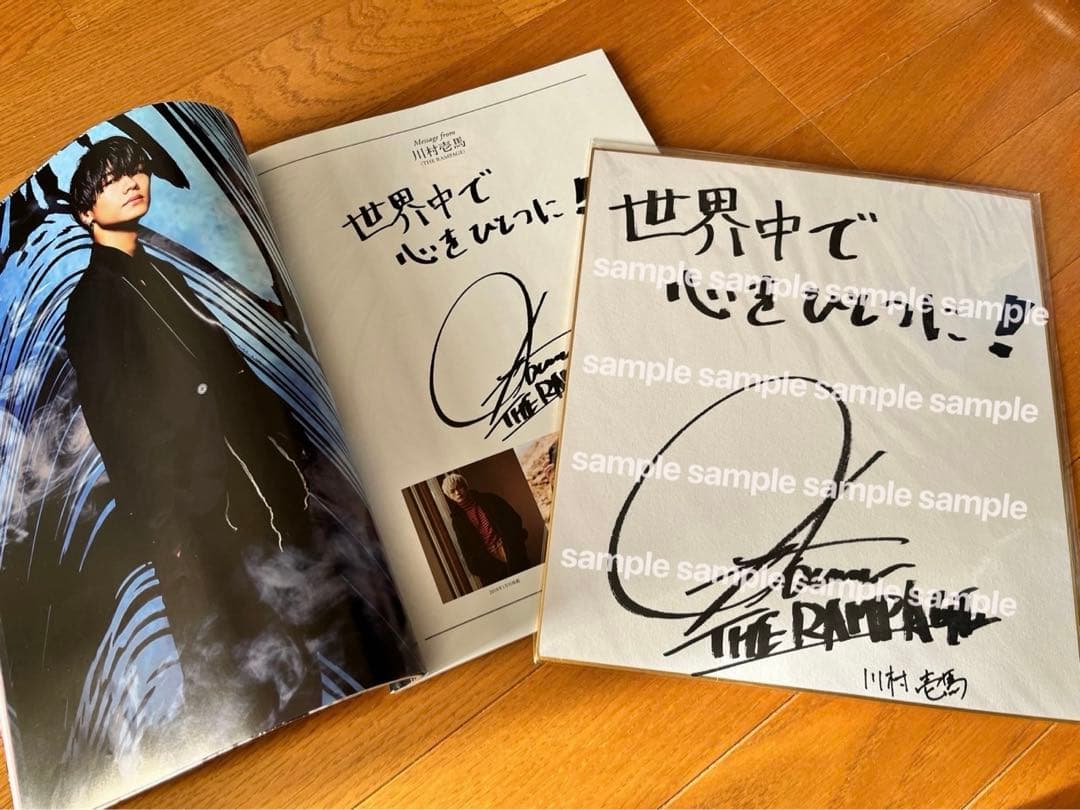 Message from
川村壱馬
(THE RAMPAGE)
世界中で
心をひとつに!
THE RAM
世界中で
心をひとつに!
THE RAMPAGE
川村壱馬
sample sample sample sample
sample sample sample sample
sample sample sample sample
sample sample sample sample